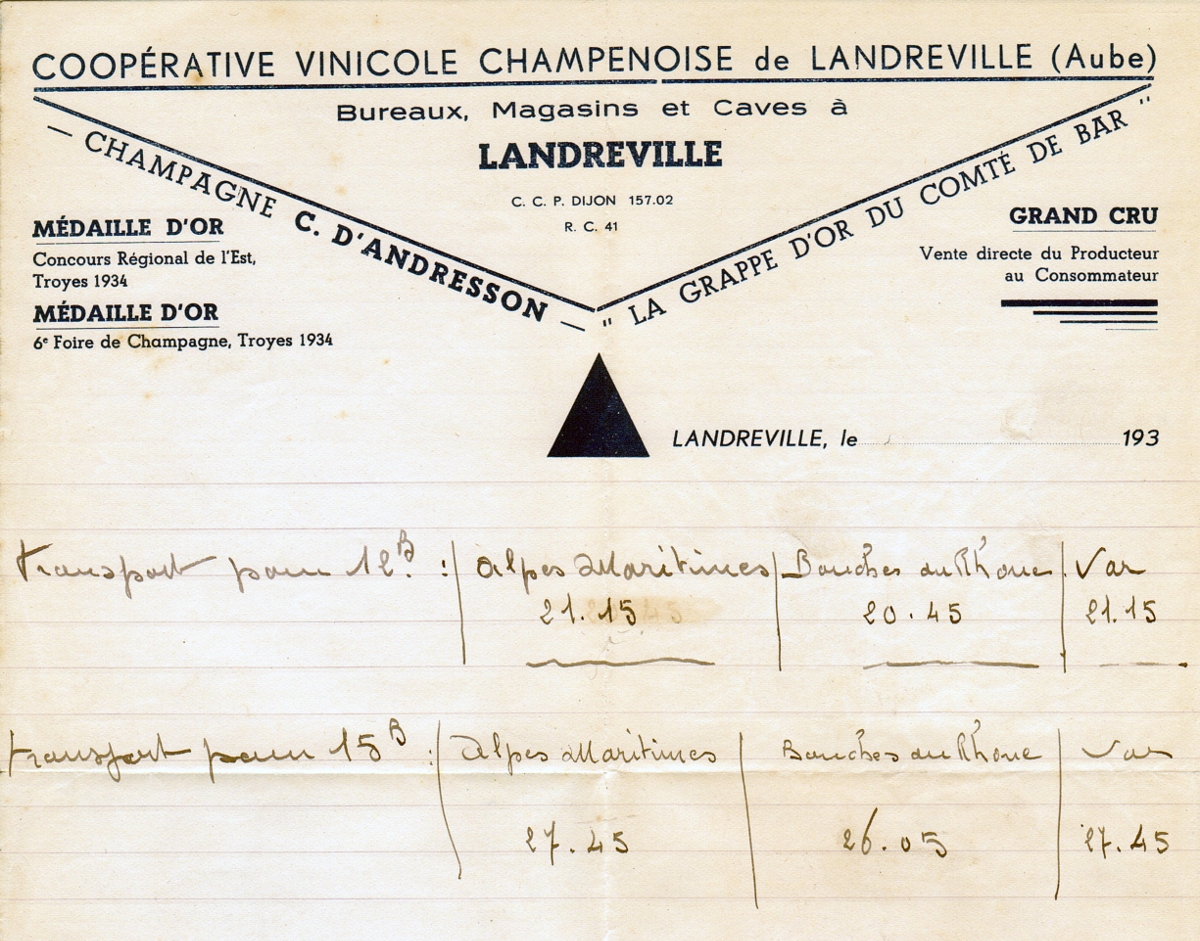 COOPÉRATIVE VINICOLE CHAMPENOISE de LANDREVILLE (Aube)
Bureaux, Magasins et Caves à
LANDREVILLE
C. C. P. DIJON 157.02
R. C. 41
— CHAMPAGNE C. D'ANDRESSON —
" LA GRAPPE D'OR DU COMTÉ DE BAR "
MÉDAILLE D'OR
Concours Régional de l'Est,
Troyes 1934
MÉDAILLE D'OR
6e Foire de Champagne, Troyes 1934
GRAND CRU
Vente directe du Producteur
au Consommateur
LANDREVILLE, le 193
transport pour 12 B. : Alpes Maritimes Bouches du Rhône Var
21.15 20.45 21.15
transport pour 15 B : Alpes Maritimes Bouches du Rhône Var
27.45 26.05 27.45